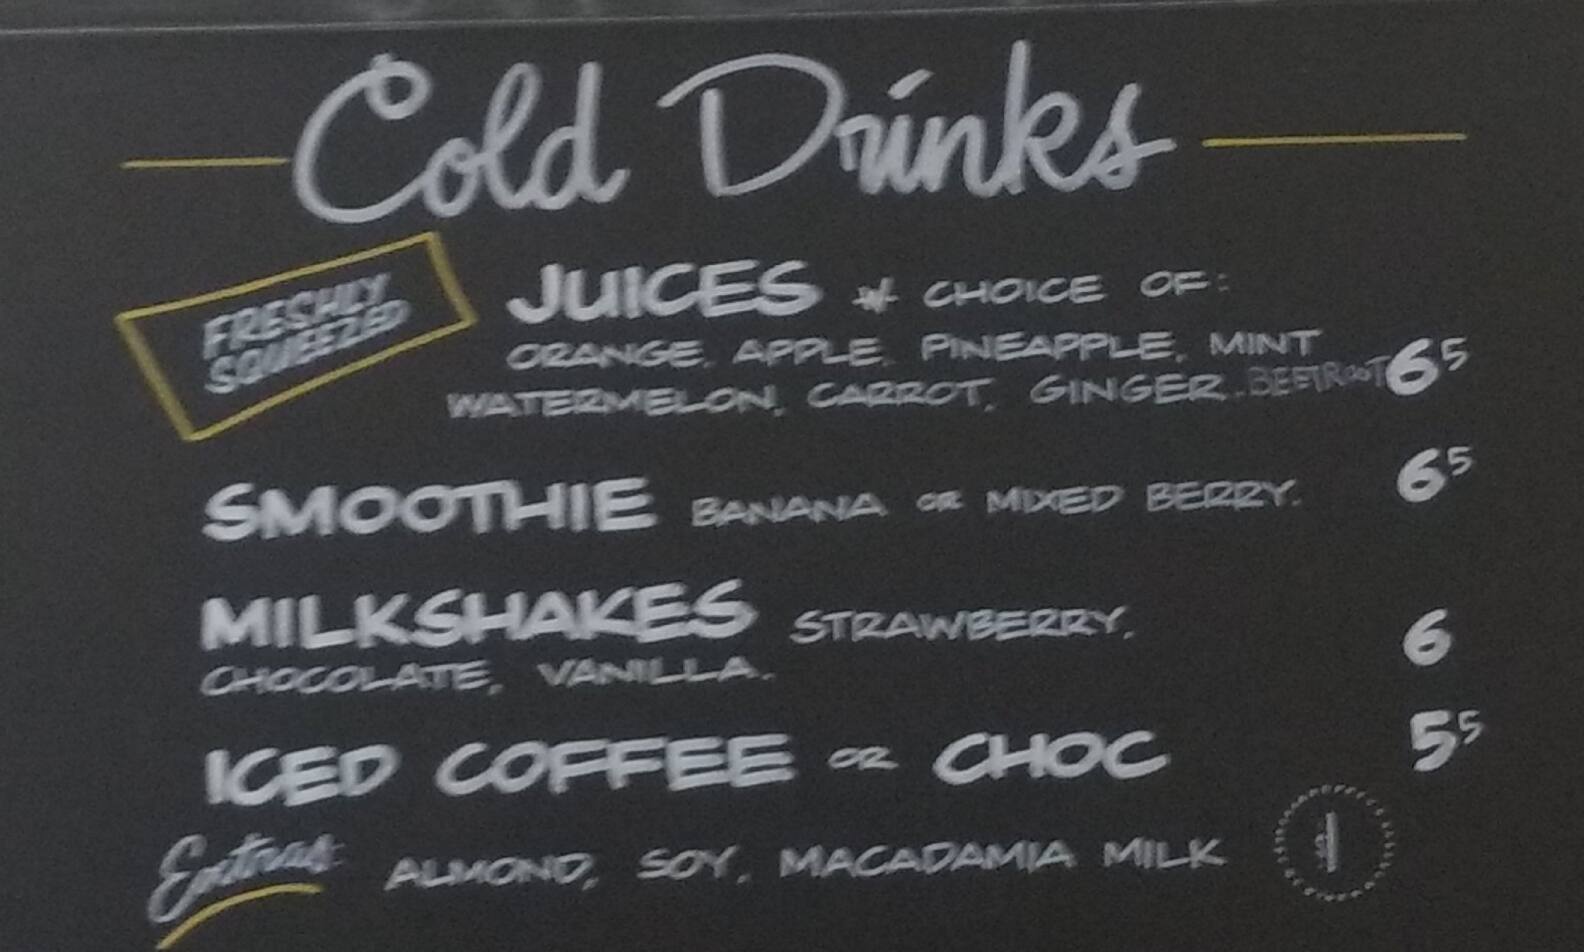 Cold Drinks
FRESHLY
SQUEEZED
JUICES W CHOICE OF:
ORANGE, APPLE, PINEAPPLE, MINT
WATERMELON, CARROT, GINGER..BEETROOT 6⁵
SMOOTHIE BANANA OR MIXED BERRY. 6⁵
MILKSHAKES STRAWBERRY, 6
CHOCOLATE, VANILLA.
ICED COFFEE OR CHOC 5⁵
Extras: ALMOND, SOY, MACADAMIA MILK $1